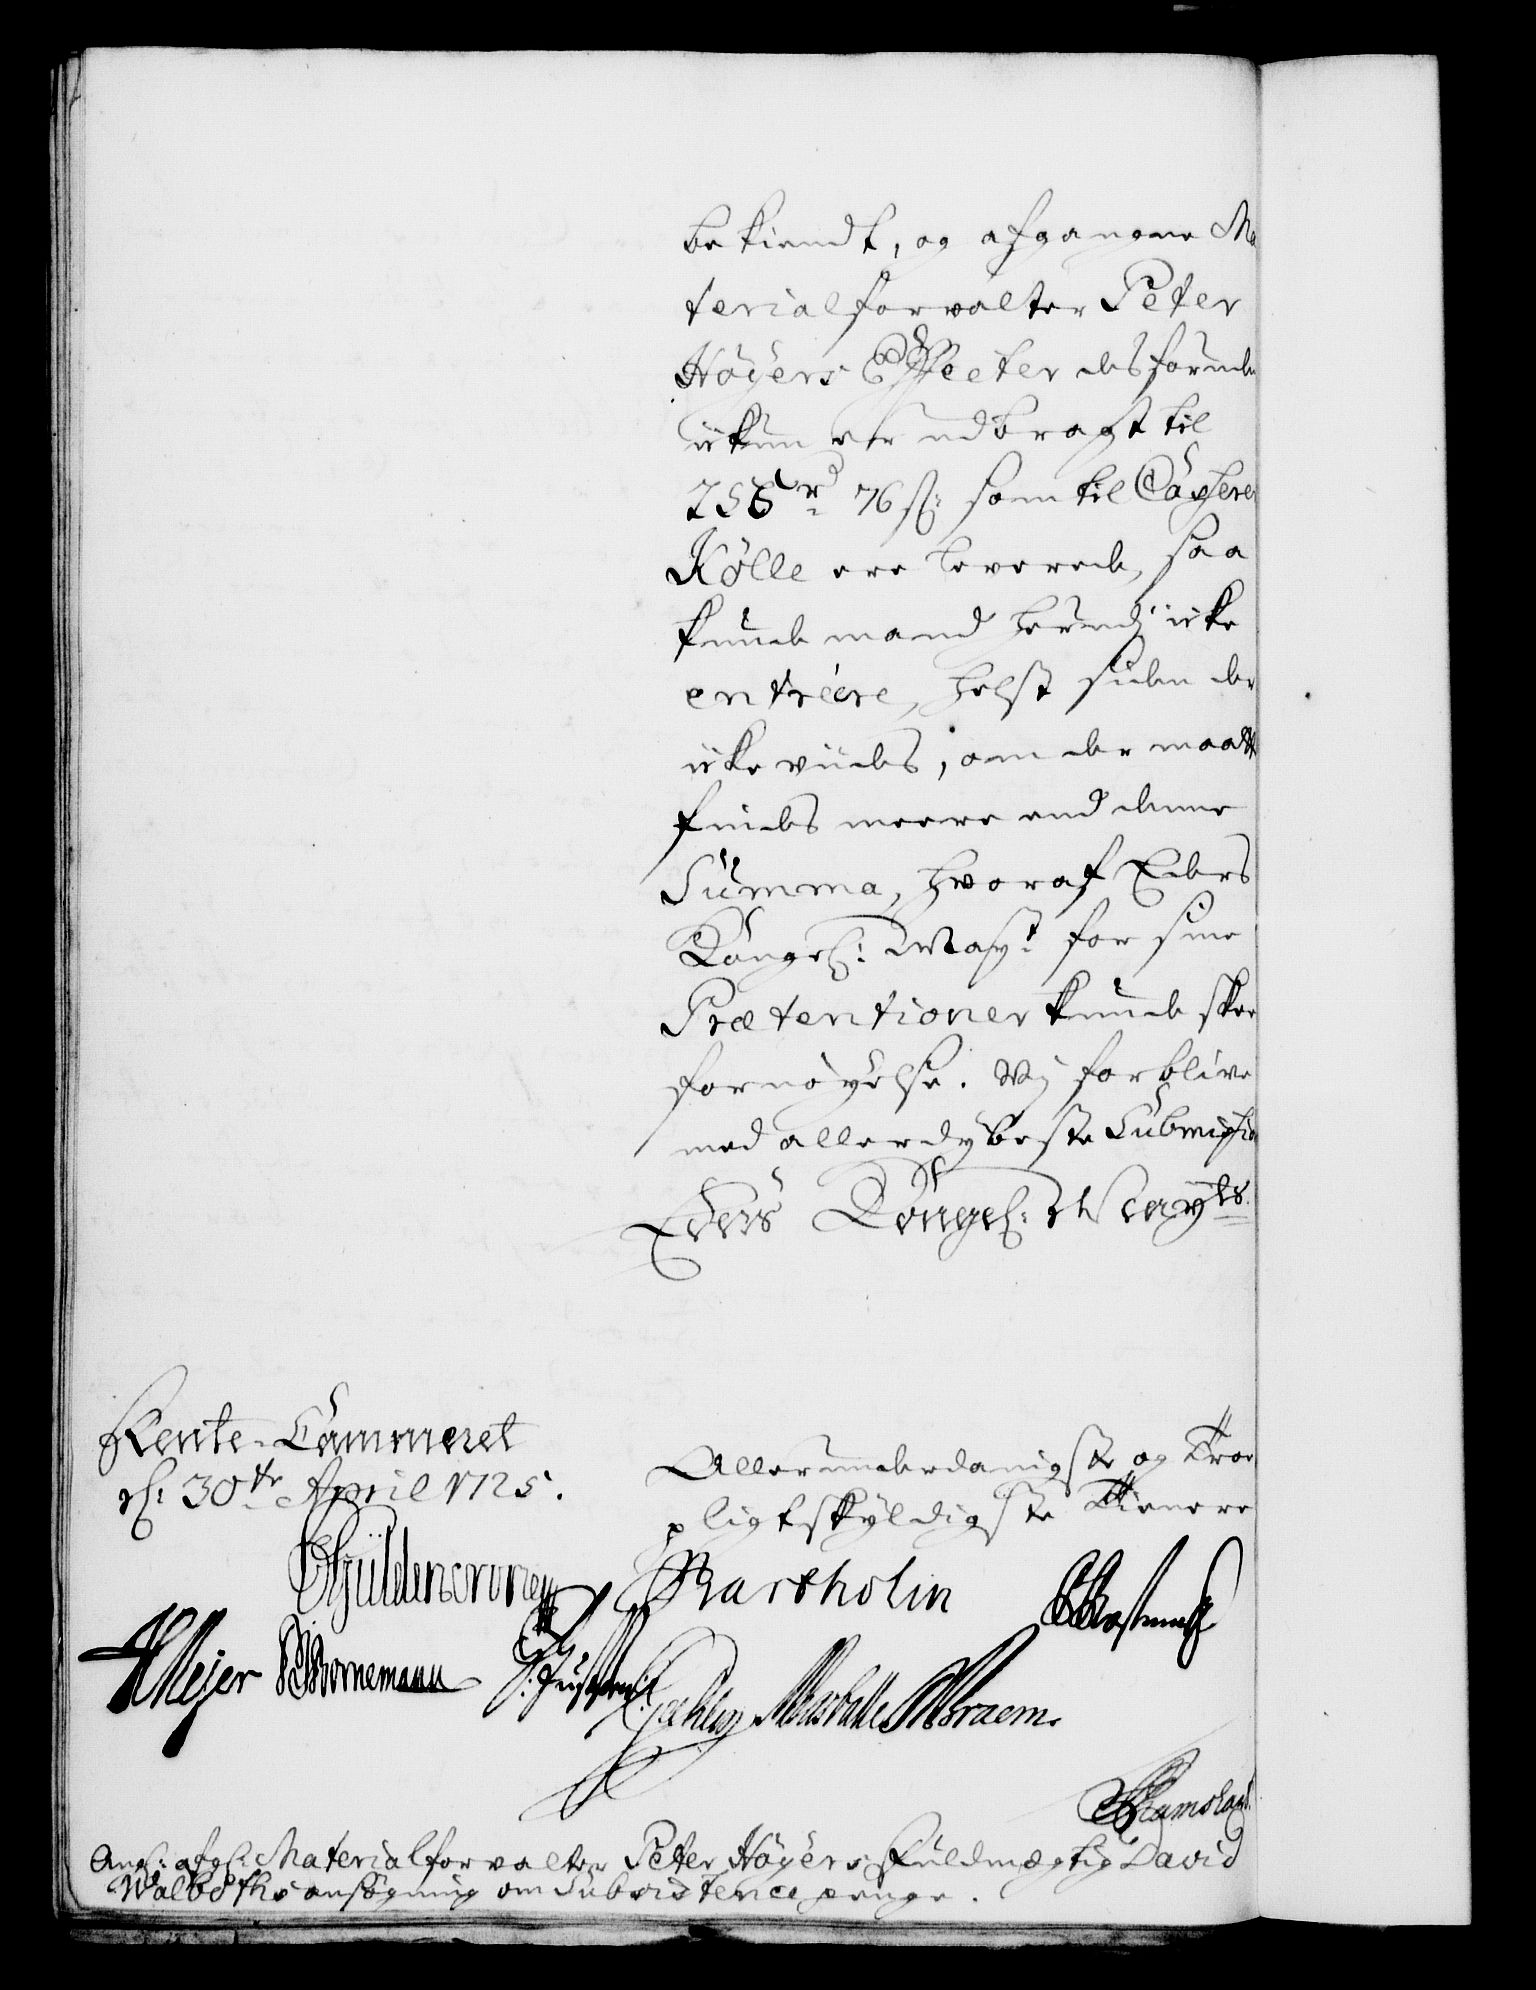 bekiendt, og afgangne Ma
terialforvalter Peter
Høyers Effecter desforuden
ickun er udbragt til
255 rd 76 s: som til Casserer
Kölle ere leverede, saa
kunde mand herudj icke
entrére, helst siden der
icke viides, om der maatte
findes meere end denne
Summa, hvoraf Eders
Kongel: Mayt: for sine
Prætentioner kunde skee
fornøyelse. Wj forblive
med allerdybeste Submission
Eders Kongel: Mayts.
Rente-Cammeret
d: 30te April 1725.
Allerunderdanigste og Troe
pligtskyldigste Tienere
Güldencrone Bartholin
HMejer Bornemann
Braem.
Ramshart.
Ang: afg: Materialforvalter Peter Høyers Fuldmægtig David
Walboths ansøgning om Subsistence penge.